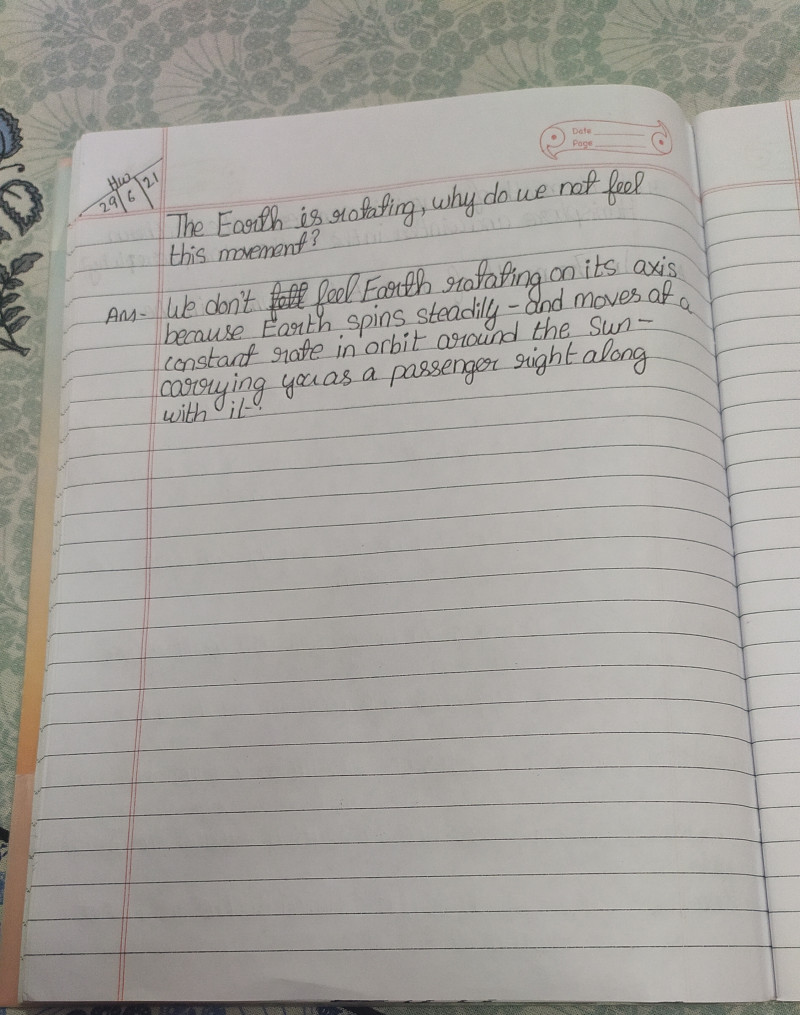 HW
29/6/21
Date
Page
The Earth is rotating, why do we not feel
this movement?
Ans- We don't feel Earth rotating on its axis
because Earth spins steadily - and moves at a
constant rate in orbit around the Sun -
carrying you as a passenger right along
with it.